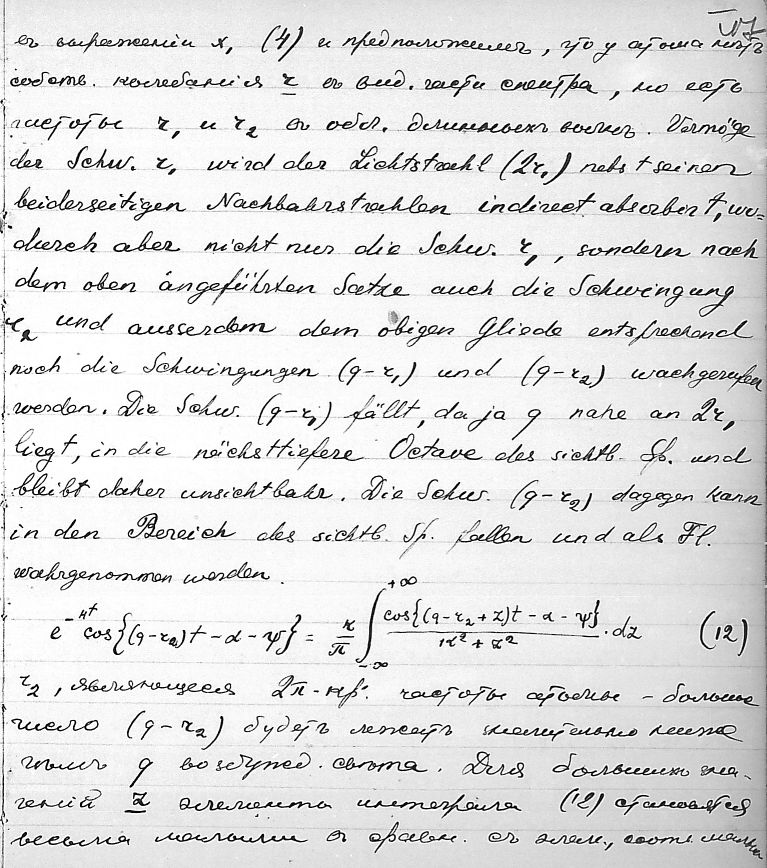 въ выраженіи x, (4) и предположимъ, что у атома нѣтъ
собств. колебанія r въ вид. части спектра, но есть
частоты r₁ и r₂ въ обл. длинныхъ волнъ. Vermöge
der Schw. r₁ wird der Lichtstrahl (2r₁) nebst seinen
beiderseitigen Nachbahrstrahlen indirect absorbirt, wo-
durch aber nicht nur die Schw. r₁, sondern nach
dem oben angeführten Satze auch die Schwingung
r₂ und ausserdem dem obigen Gliede entsprechend
noch die Schwingungen (q-r₁) und (q-r₂) wachgerufen
werden. Die Schw. (q-r₁) fällt, da ja q nahe an 2r₁
liegt, in die nächsttiefere Octave des sichtb. Sp. und
bleibt daher unsichtbahr. Die Schw. (q-r₂) dagegen kann
in den Bereich des sichtb. Sp. fallen und als Fl.
wahrgenommen werden.
e^{-κt} cos{(q-r₂)t - α - ψ} = κ/π ∫_{-∞}^{+∞} cos{(q-r₂+z)t - α - ψ}/(κ² + z²) · dz (12)
r₂, являющееся 2π-кр. частоты атома - больше
число (q-r₂) будетъ лежать значительно ниже
чѣмъ q возбужд. свѣта. Для большихъ зна-
ченій z элементы интеграла (12) становятся
весьма малыми въ сравн. съ элем.,